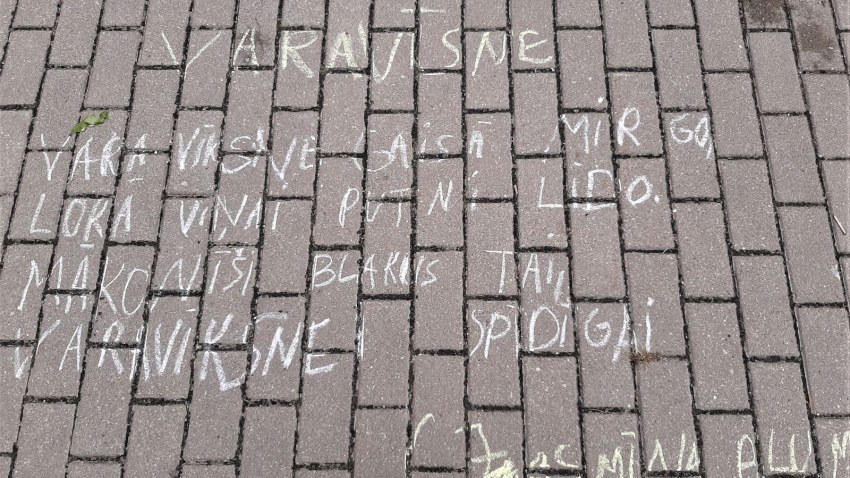 VARAVĪSNE
VARA VĪKSNE GAISĀ MIRGO,
LOKA VIŅAI PUTNI LIDO.
MĀKOŅĪŠI BLAKUS TAI,
VARAVĪKSNEI SPĪDIGAI